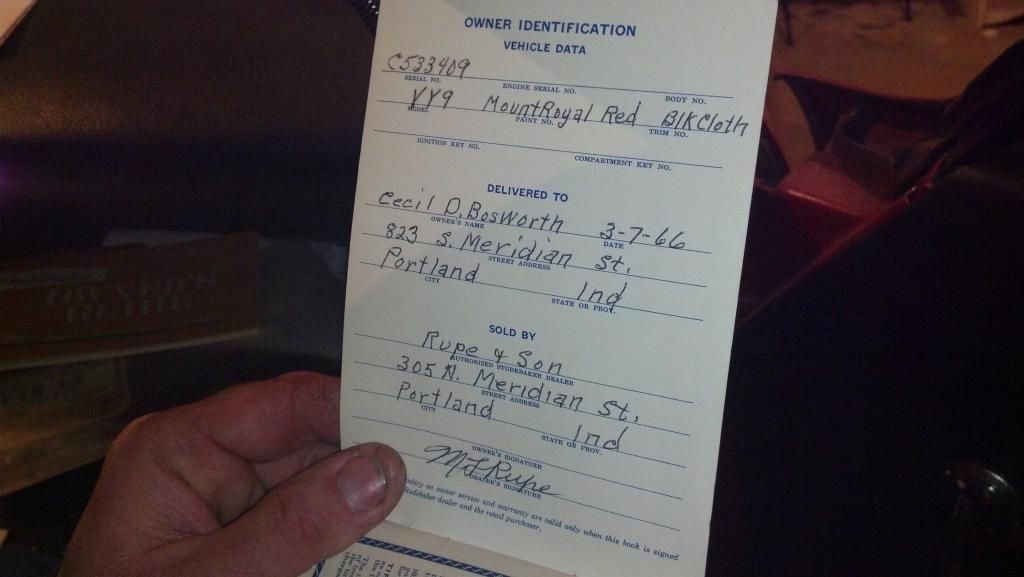 OWNER IDENTIFICATION
VEHICLE DATA
C533409
SERIAL NO. ENGINE SERIAL NO. BODY NO.
VY9 MountRoyal Red BlKCloth
MODEL PAINT NO. TRIM NO.
IGNITION KEY NO. COMPARTMENT KEY NO.
DELIVERED TO
Cecil D. BosWorth 3-7-66
OWNER'S NAME DATE
823 S. Meridian St.
STREET ADDRESS
Portland Ind
CITY STATE OR PROV.
SOLD BY
Rupe & Son
AUTHORIZED STUDEBAKER DEALER
305 N. Meridian St.
STREET ADDRESS
Portland Ind
CITY STATE OR PROV.
OWNER'S SIGNATURE
Rupe
DEALER'S SIGNATURE
policy on owner service and warranty are valid only when this book is signed
Studebaker dealer and the retail purchaser.
OWNER'S
GUIDE